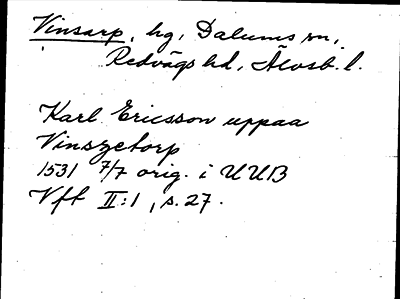 Vinsarp, hg, Dalums sn,
Redvägs hd, Älvsb. l.
Karl Ericsson uppaa
Vinszetorp
1531 7/7 orig. i UUB
Vft II:1, s. 27.